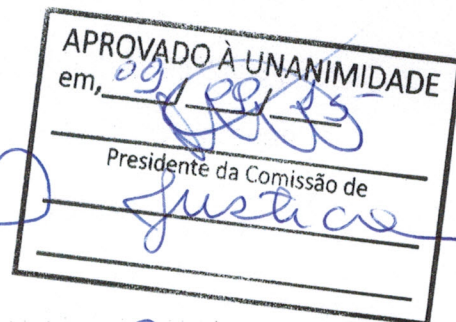 APROVADO À UNANIMIDADE
em, 09/09/15
Presidente da Comissão de
Justica